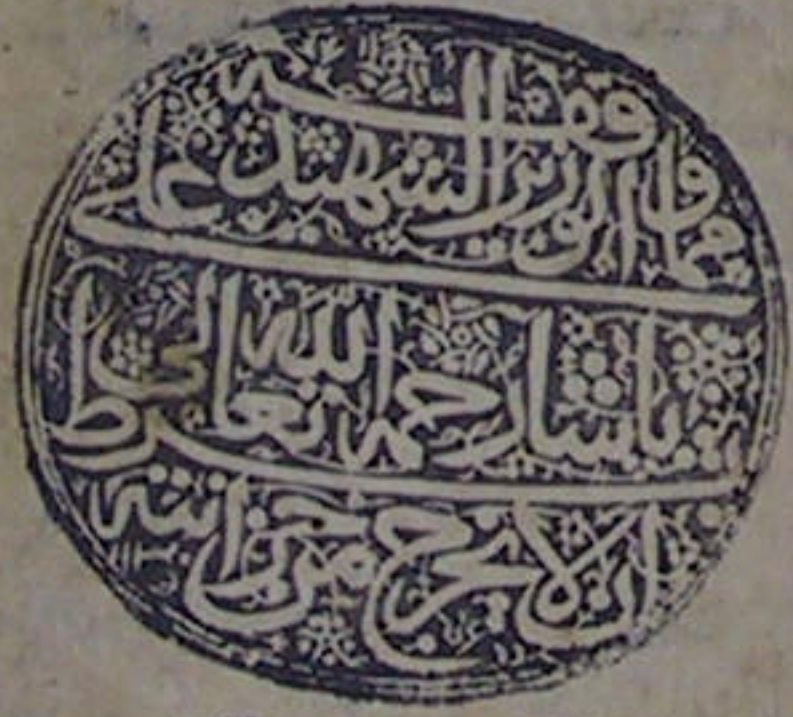 مما وقفه الوزير الشهيد علي
پاشا رحمه الله تعالى بشرط
ان لا يخرج من خزانته